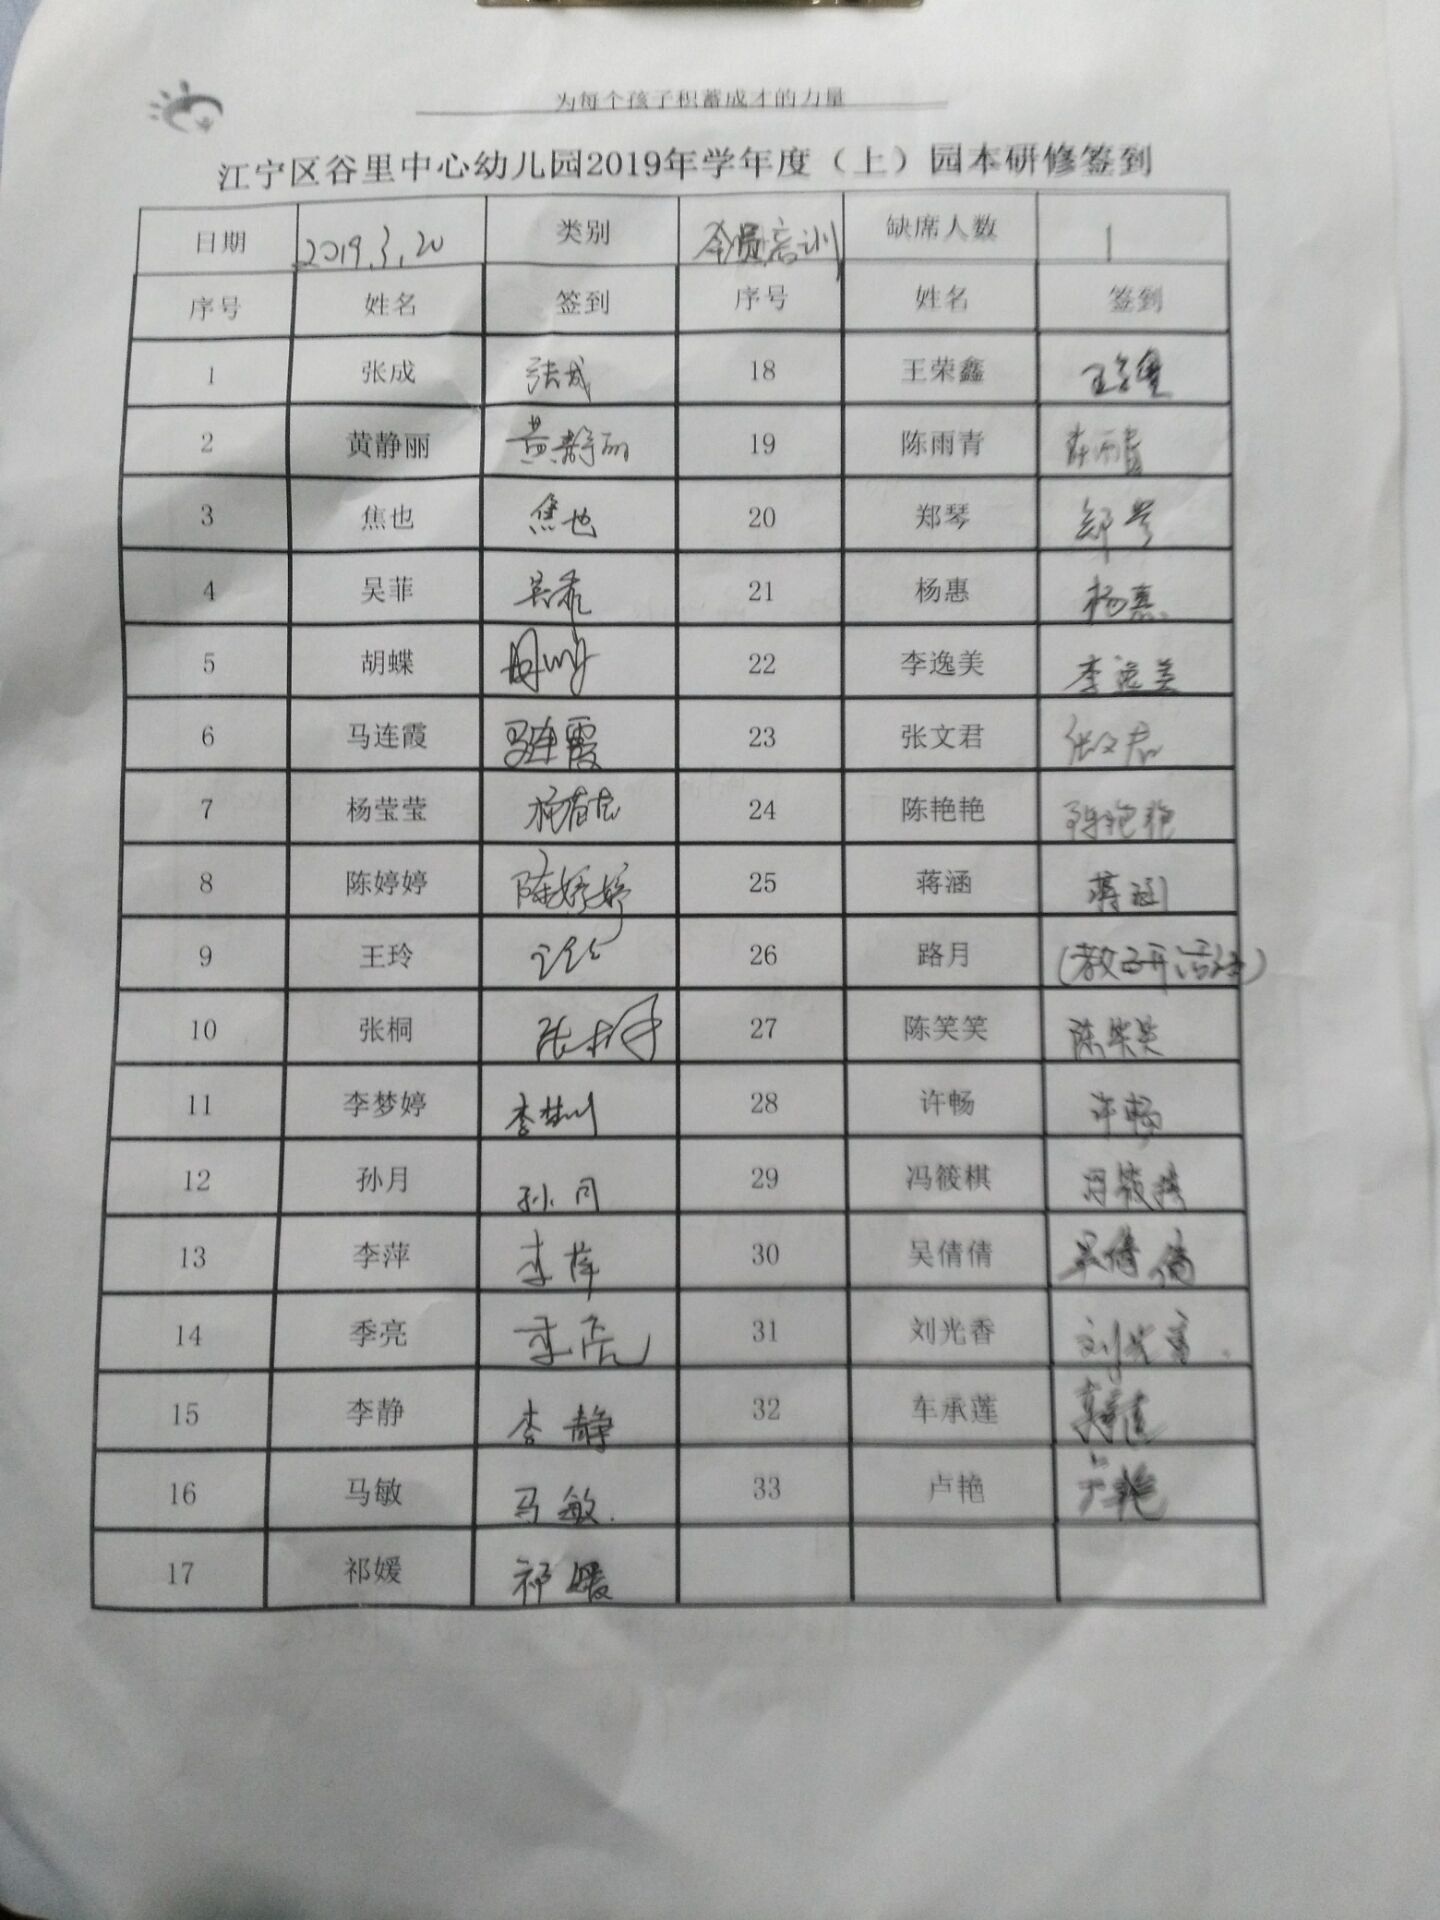 为每个孩子积蓄成才的力量
江宁区谷里中心幼儿园2019年学年度（上）园本研修签到
日期 2019.3.20 类别 全员培训 缺席人数 1
序号 姓名 签到 序号 姓名 签到
1 张成 张成 18 王荣鑫
2 黄静丽 黄静丽 19 陈雨青 陈雨青
3 焦也 焦也 20 郑琴 郑琴
4 吴菲 吴菲 21 杨惠 杨惠
5 胡蝶 22 李逸美 李逸美
6 马连霞 马连霞 23 张文君 张文君
7 杨莹莹 24 陈艳艳 陈艳艳
8 陈婷婷 陈婷婷 25 蒋涵 蒋涵
9 王玲 王玲 26 路月 (教研活动)
10 张桐 张桐 27 陈笑笑 陈笑笑
11 李梦婷 28 许畅 许畅
12 孙月 孙月 29 冯筱棋 冯筱棋
13 李萍 李萍 30 吴倩倩 吴倩倩
14 季亮 季亮 31 刘光香 刘光香
15 李静 李静 32 车承莲
16 马敏 马敏 33 卢艳 卢艳
17 祁媛 祁媛